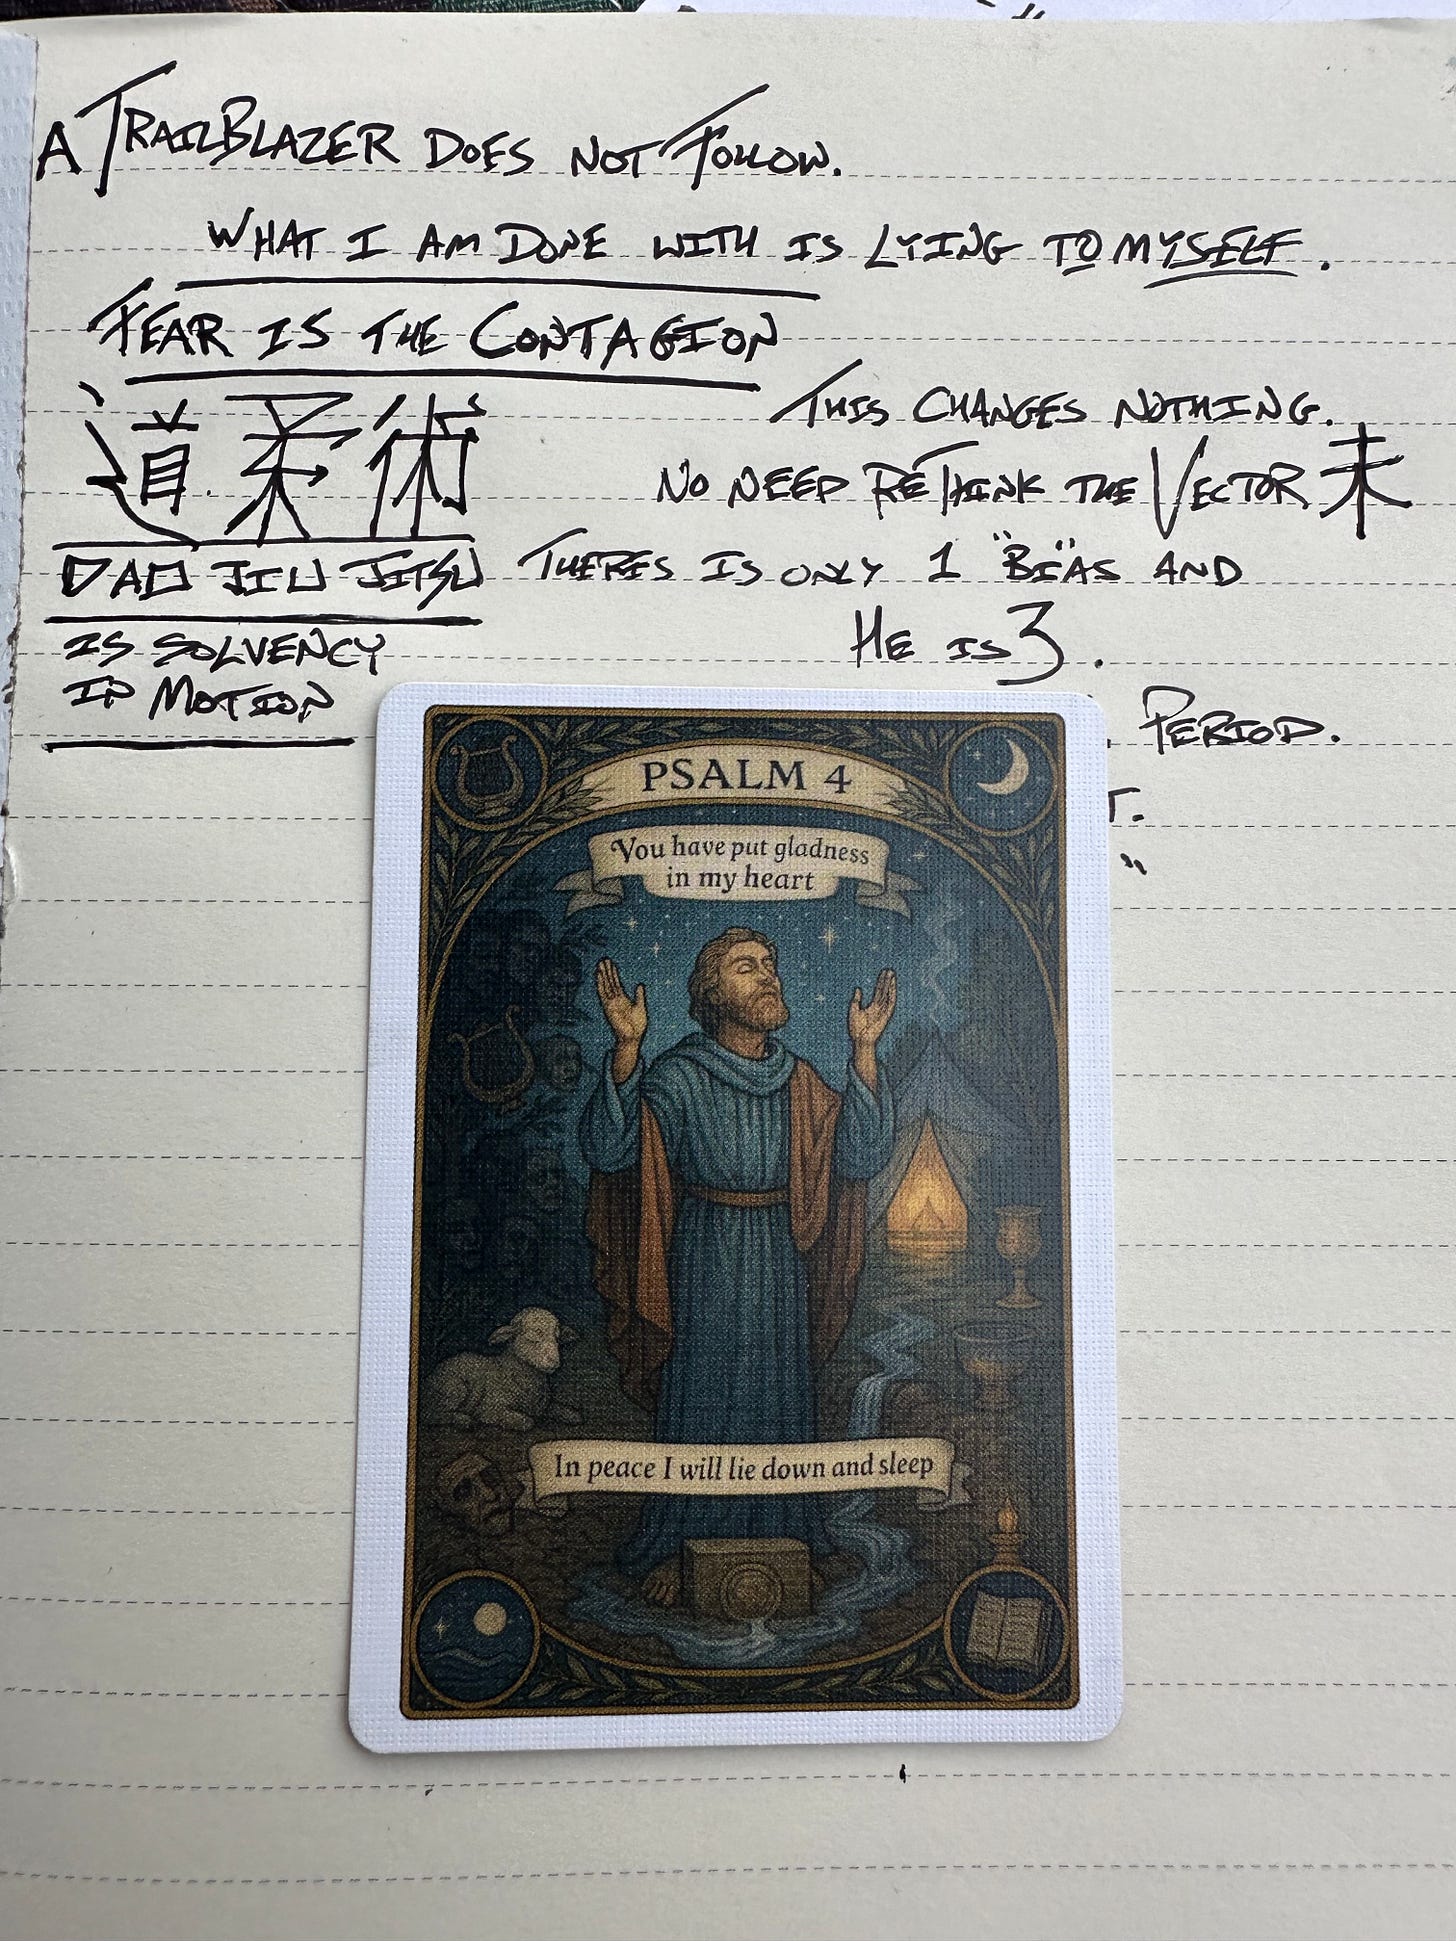 A TRAILBLAZER DOES NOT FOLLOW.
WHAT I AM DONE WITH IS LYING TO MYSELF.
FEAR IS THE CONTAGION
道柔術
THIS CHANGES NOTHING.
NO NEED RETHINK THE VECTOR 未
DAO JIU JITSU
THERES IS ONLY 1 "BI"AS AND
HE IS 3.
IS SOLVENCY
IN MOTION
PERIOD.
T.
"
PSALM 4
You have put gladness
in my heart
In peace I will lie down and sleep